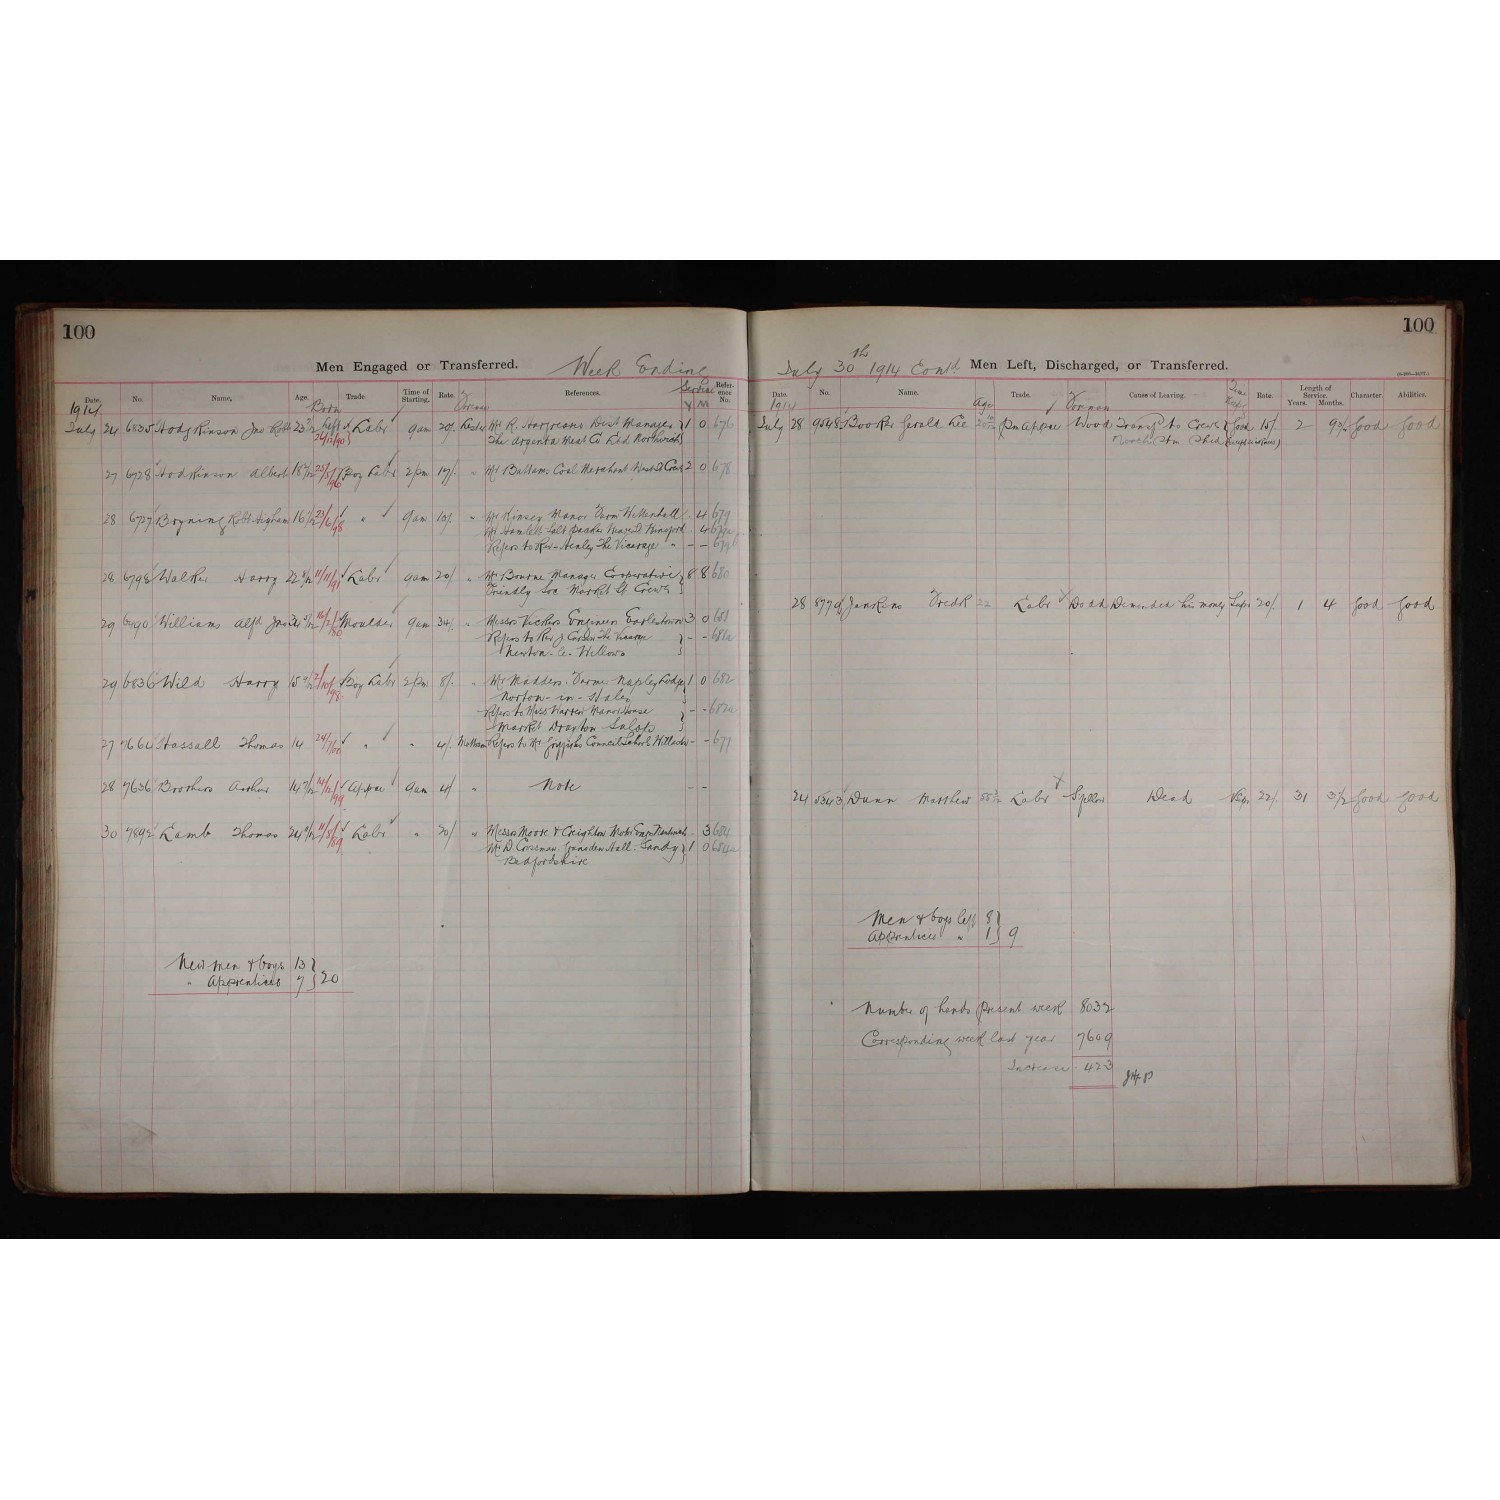 100
Men Engaged or Transferred. Week Ending
Date. No. Name. Age. Born Trade. Time of Starting. Rate. Foreman References. Service Y M Reference No.
1914
July 24 6835 Hodgkinson Jno Robt 23 Labr 9am 20/- Lester Mr R. Hargreaves Dist Manager 1 0 676
The Argenta Meat Co Ltd Northwich
27 6728 Hodkinson Albert 18 Boy Labr 2pm 17/- " Mr Bullams Coal Merchant West St Crewe 2 0 678
28 6727 Bryning Robt Higham 16 " 9am 10/- " Mr Kinsey Manor Farm Wettenhall - 4 679
Mr Hamlett Salt Packer Weaver St Winsford - 4 679a
Refers to Rev - Henley The Vicarage " - - 679b
28 6798 Walker Harry 22 11/11/91 Labr 9am 20/- " Mr Bourne Manager Cooperative 8 8 680
Friendly Soc Market St Crewe
29 6490 Williams Alfd Jno 34 Moulder 9am 34/- " Messrs Vickers Engineers Earlestown 3 0 681
Refers to Rev J Carson The Vicarage - - 681a
Newton-le-Willows
29 6836 Wild Harry 15 Boy Labr 2pm 8/- " Mr Madders. Farmer Napley Lodge 1 0 682
Norton-in-Hales
Refers to Miss Warren Manor House - - 682a
Market Drayton Salop
27 7664 Hassall Thomas 14 24/7/00 " " 4/- Refers to Mr Griffiths Council Schools - - 677
28 7636 Brothers Arthur 14 Appce 9am 4/- " Note - -
30 7892 Lamb Thomas 24 11/8/89 Labr " 20/- " Messrs Moore & Creighton Motor Engrs Nantwich - 3 684
Mr D Crossman Gransden Hall. Sandy 1 0 684a
Bedfordshire
New men & boys 13
" Apprentices 7 } 20
100
July 30th 1914 Contd. Men Left, Discharged, or Transferred.
Date. No. Name. Age Trade. Foreman Cause of Leaving. Time Keepg Rate. Length of Service. Years. Months. Character. Abilities.
1914
July 28 9548 Booker Gerald Lee 20 Pm Appce Wood Transfd to Crewe Good 15/- 2 9½ Good Good
North Stn Shed
28 8779 Jenkins Fredk 22 Labr Dodd Demanded his money 20/- 1 4 Good Good
24 5343 Dunn Matthew 55 Labr Spellor Dead 22/- 31 3½ Good Good
Men & boys left 8
Apprentices " 1 } 9
Number of hands present week 8032
Corresponding week last year 7609
Increase 423